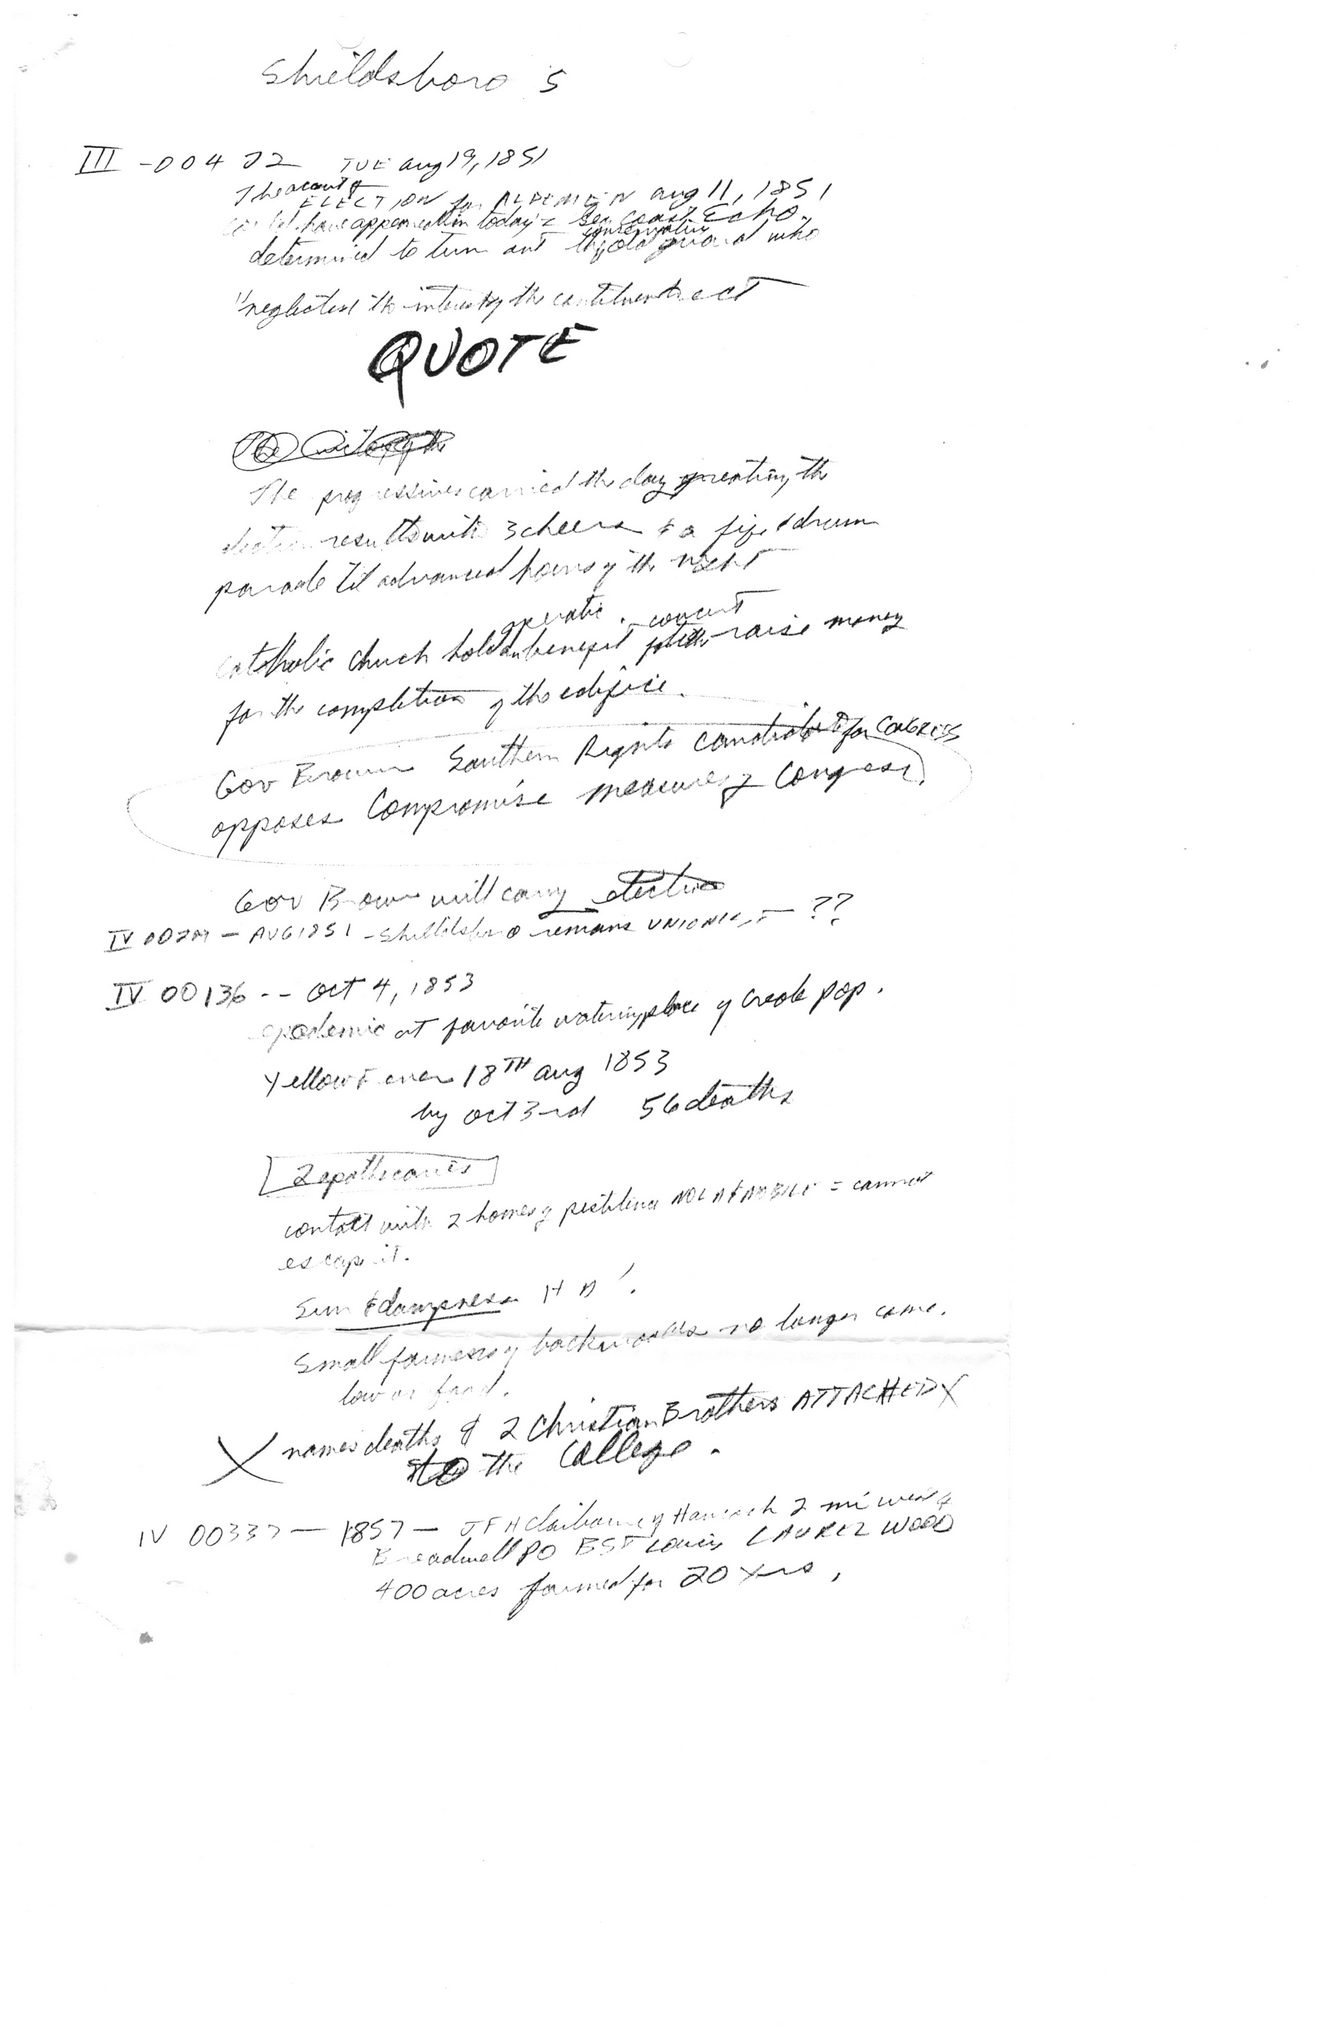 Shieldsboro 5
III - 004 22 TUE Aug 19, 1851
The account of
ELECTION for ALDEMEN Aug 11, 1851
have appeared in today's Sea Coast Echo.
conservative
determined to turn out the old guard who
"neglected the interests of the constituents ect
QUOTE
The progressives carried the day greeting the
election results with 3 cheers & a fife & drum
parade til advanced hours of the night
operatic concert
Catholic Church holds benefit to raise money
for the completion of the edifice.
Gov Brown Southern Rights candidate for CONGRESS
opposes Compromise measures of Congress.
Gov Brown will carry election
IV - AUG 1851 - Shieldsboro remains UNIONIST - ??
IV 00136 -- Oct 4, 1853
epidemic at favorite watering place of Creole pop.
Yellow Fever 18TH Aug 1853
by Oct 3rd 56 deaths
2 apothecaries
contact with 2 homes of pestilence NOLA & MOBILE = cannot
escape it.
Sun & dampness
Small farmers of backwoods no longer come.
low on food.
X names deaths of 2 Christian Brothers ATTACHED X
to the College.
IV 00337 - 1857 - JFH Claiborne of Hancock 2 mi west of
PO BST Louis LAUREL WOOD
400 acres farmed for 20 yrs,